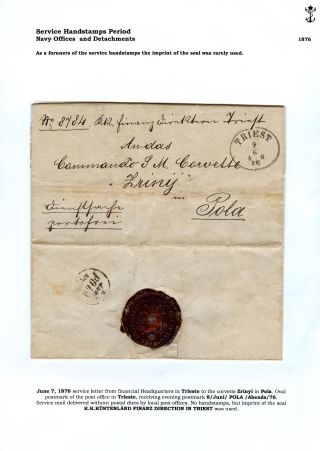 Service Handstamps Period
Navy Offices and Detachments
1876
As a foruners of the service handstamps the imprint of the seal was rarely used.
No 8784 KK Finanz Direktion Triest
An das
Commando S M Corvette
"Zrinij"
in
Pola
Dienstsache
portofrei
TRIEST
7
6
76
POLA
June 7, 1876 service letter from financial Headquarters in Trieste to the corvette Zrinyi in Pola. Oval
postmark of the post office in Trieste, receiving evening postmark 8/Juni/ POLA /Abends/76.
Service mail delivered without postal dues by local post offices. No handstamps, but imprint of the seal
K.K.KÜSTENLÄND FINANZ DIRECTION IN TRIEST was used.